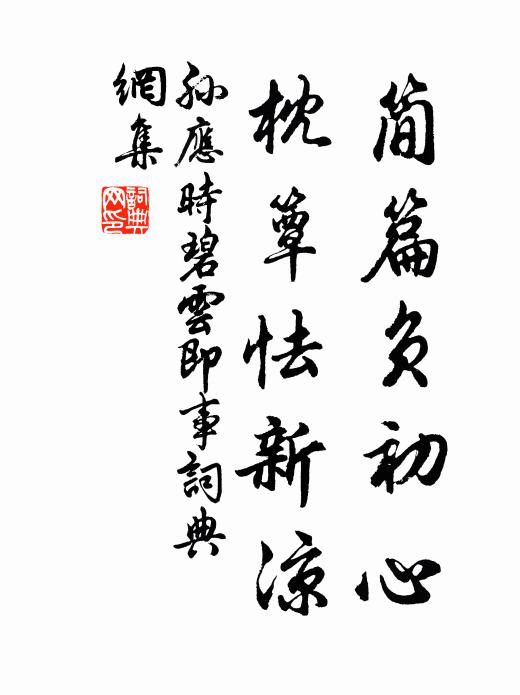 简篇負初心
枕簟怯新涼
孫應時碧雲即事詞典
網集
詞典
网印